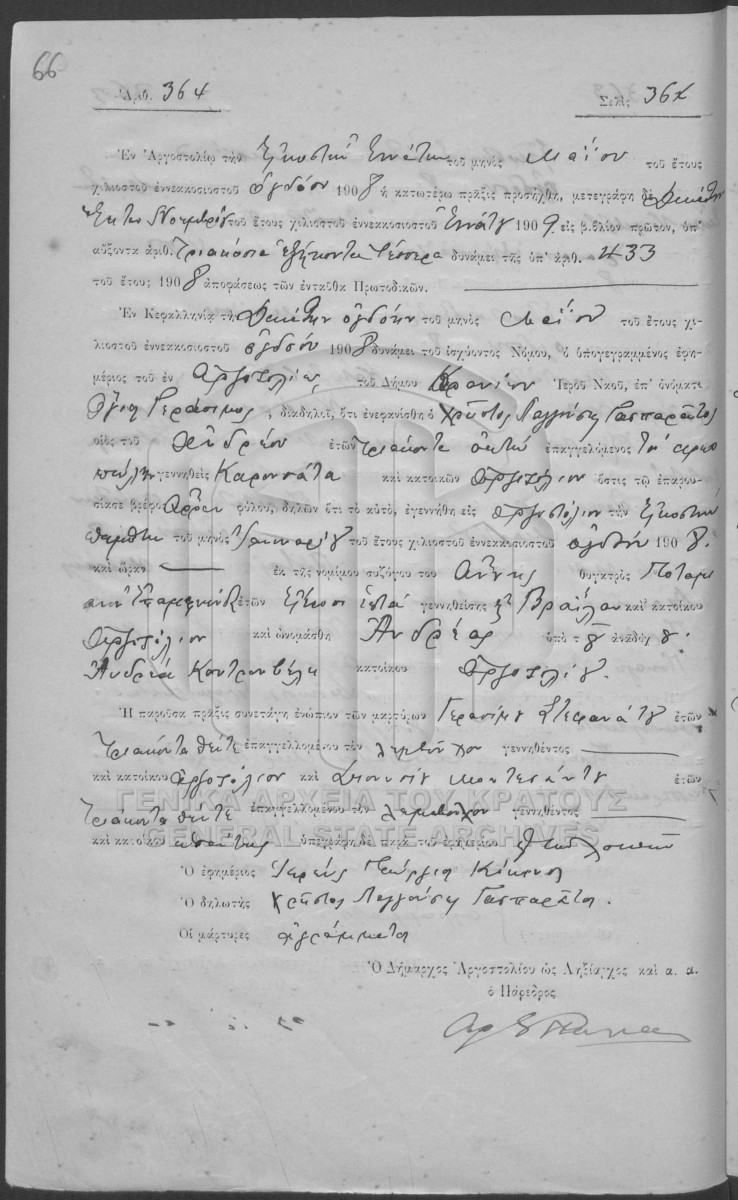 66
Ἀριθ. 364 Σελὶς 364
Ἐν Ἀργοστολίῳ τὴν Εἰκοστὴν Ἐννάτην τοῦ μηνὸς Μαΐου τοῦ ἔτους
χιλιοστοῦ ἐννεακοσιοστοῦ ὀγδόου 1908 ἡ κατωτέρω πρᾶξις προσήχθη, μετεγράφη δὲ Δεκάτην
Ἕκτην Νοεμβρίου τοῦ ἔτους χιλιοστοῦ ἐννεακοσιοστοῦ Ἐννάτου 1909 εἰς βιβλίον πρῶτον, ὑπ'
αὔξοντα ἀριθ. Τριακόσια ἑξήκοντα Τέσσερα δυνάμει τῆς ὑπ' ἀριθ. 433
τοῦ ἔτους 1908 ἀποφάσεως τῶν ἐνταῦθα Πρωτοδικῶν.
Ἐν Κεφαλληνίᾳ τὴν Δεκάτην ὀγδόην τοῦ μηνὸς Μαΐου τοῦ ἔτους χι-
λιοστοῦ ἐννεακοσιοστοῦ ὀγδόου 1908 δυνάμει τοῦ ἰσχύοντος Νόμου, ὁ ὑπογεγραμμένος ἐφη-
μέριος τοῦ ἐν Ἀργοστολίῳ τοῦ Δήμου Κρανίων Ἱεροῦ Ναοῦ, ἐπ' ὀνόματι
Ἁγίου Γεράσιμος, διαδηλοῖ, ὅτι ἐνεφανίσθη ὁ Χρῆστος Λαγγούσης Γασπαρᾶτος
υἱὸς τοῦ Ἀνδρέου ἐτῶν Τριάκοντα ὀκτώ ἐπαγγελλόμενος
γεννηθεὶς Καρουσάτα καὶ κατοικῶν Ἀργοστόλιον ὅστις τῷ ἐπαρου-
σίασε βρέφος Ἄρρεν φύλου, δηλῶν ὅτι τὸ αὐτό, ἐγεννήθη εἰς Ἀργοστόλιον τὴν Εἰκοστὴν
πέμπτην τοῦ μηνὸς Ἰανουαρίου τοῦ ἔτους χιλιοστοῦ ἐννεακοσιοστοῦ ὀγδόου 1908.
καὶ ὥραν ἐκ τῆς νομίμου συζύγου του Ἄννης θυγατρὸς
ἐτῶν Εἴκοσι ἑπτά γεννηθείσης εἰς Βραΐλαν καὶ κατοίκου
Ἀργοστόλιον καὶ ὠνομάσθη Ἀνδρέας ὑπὸ τοῦ ἀναδόχου.
Ἀνδρέα Κουτρουβέλη κατοίκου Ἀργοστολίου.
Ἡ παροῦσα πρᾶξις συνετάγη ἐνώπιον τῶν μαρτύρων Γερασίμου Στεφανάτου ἐτῶν
Τριάκοντα πέντε ἐπαγγελλομένου τὸν λεμβοῦχον γεννηθέντος
καὶ κατοίκου Ἀργοστόλιον καὶ Διονυσίου Μοντεσάντου ἐτῶν
Τριάκοντα πέντε ἐπαγγελλομένου τὸν λεμβοῦχον γεννηθέντος
καὶ κατοίκου ὑπεγράφη δὲ παρὰ τοῦ ἐφημερίου
ΓΕΝΙΚΑ ΑΡΧΕΙΑ ΤΟΥ ΚΡΑΤΟΥΣ
GENERAL STATE ARCHIVES
Ὁ ἐφημέριος Ἱερεὺς Γεώργιος
Ὁ δηλωτὴς Χρῆστος Λαγγούσης Γασπαρᾶτος.
Οἱ μάρτυρες ἀγράμματοι
Ὁ Δήμαρχος Ἀργοστολίου ὡς Ληξίαρχος καὶ α. α.
ὁ Πάρεδρος